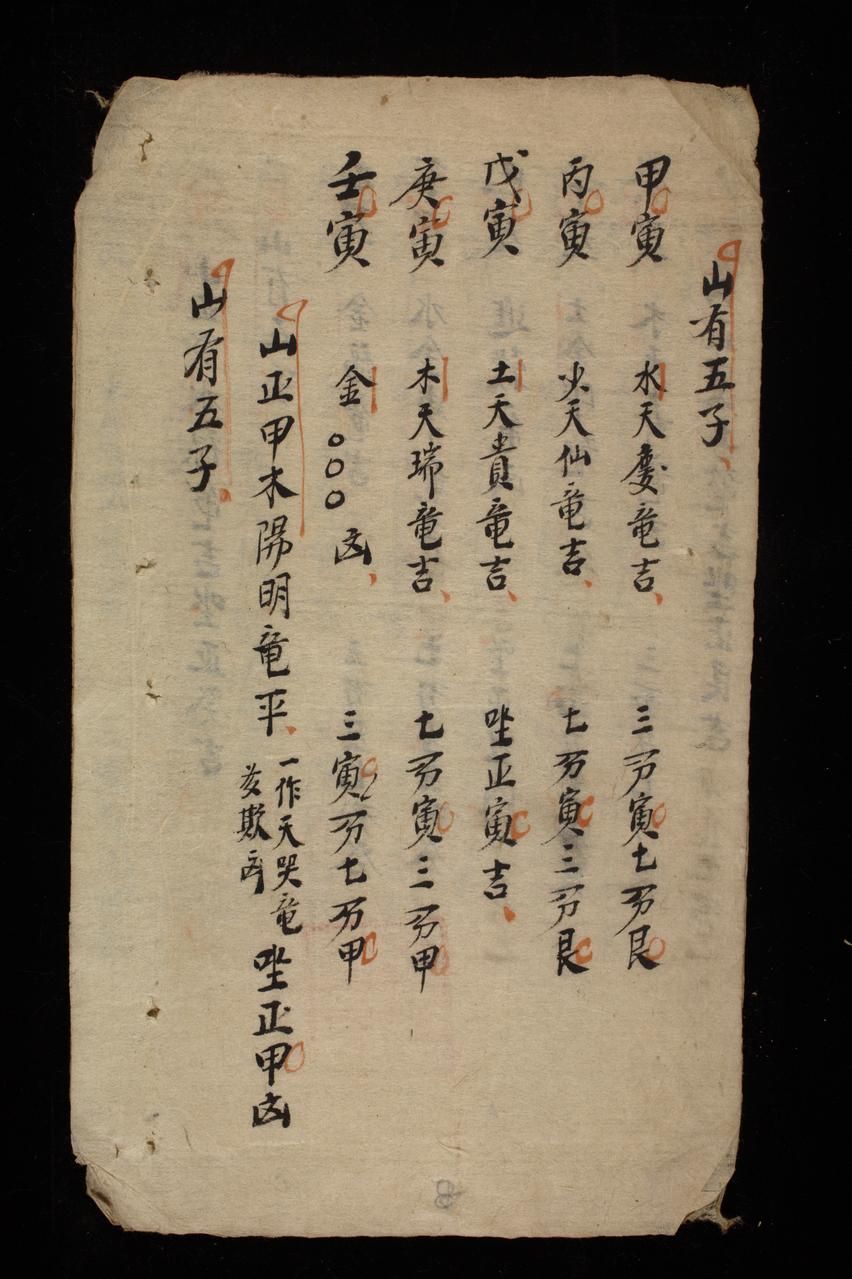 山有五子
甲寅 水天慶竜吉 三分寅七分艮
丙寅 火天仙竜吉 七分寅三分艮
戊寅 土天貴竜吉 坐正寅吉
庚寅 木天瑞竜吉 七分寅三分甲
壬寅 金○○○凶 三寅分七分甲
山正甲木陽明竜平 一作天哭竜 欺凶 坐正甲凶
山有五子